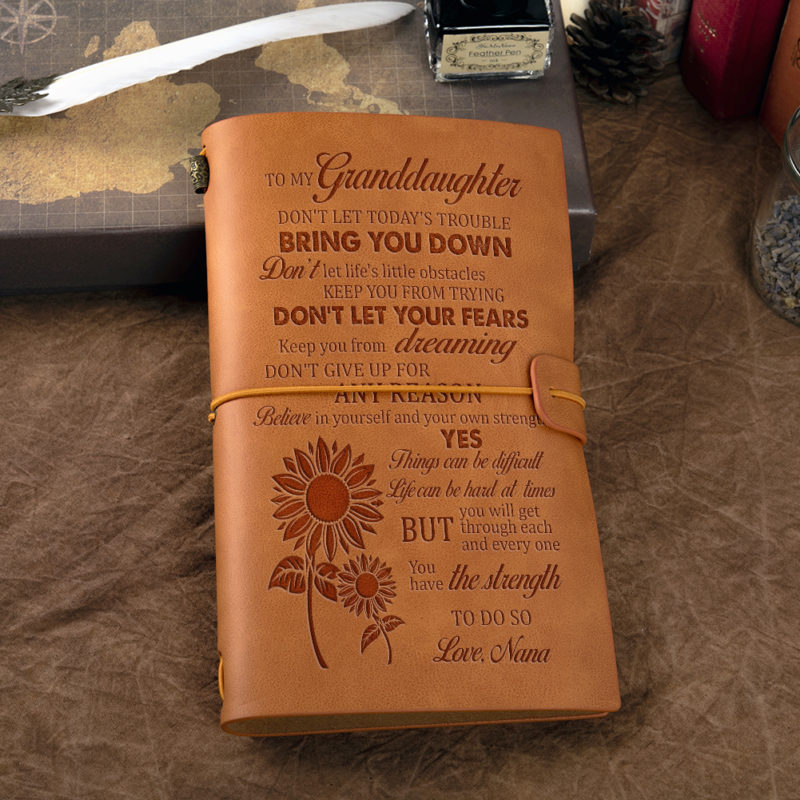 Feather Pen
TO MY Granddaughter
DON'T LET TODAY'S TROUBLE
BRING YOU DOWN
Don't let life's little obstacles
KEEP YOU FROM TRYING
DON'T LET YOUR FEARS
Keep you from dreaming
DON'T GIVE UP FOR
ANY REASON
Believe in yourself and your own strength
YES
Things can be difficult
Life can be hard at times
BUT you will get
through each
and every one
You
have the strength
TO DO SO
Love, Nana